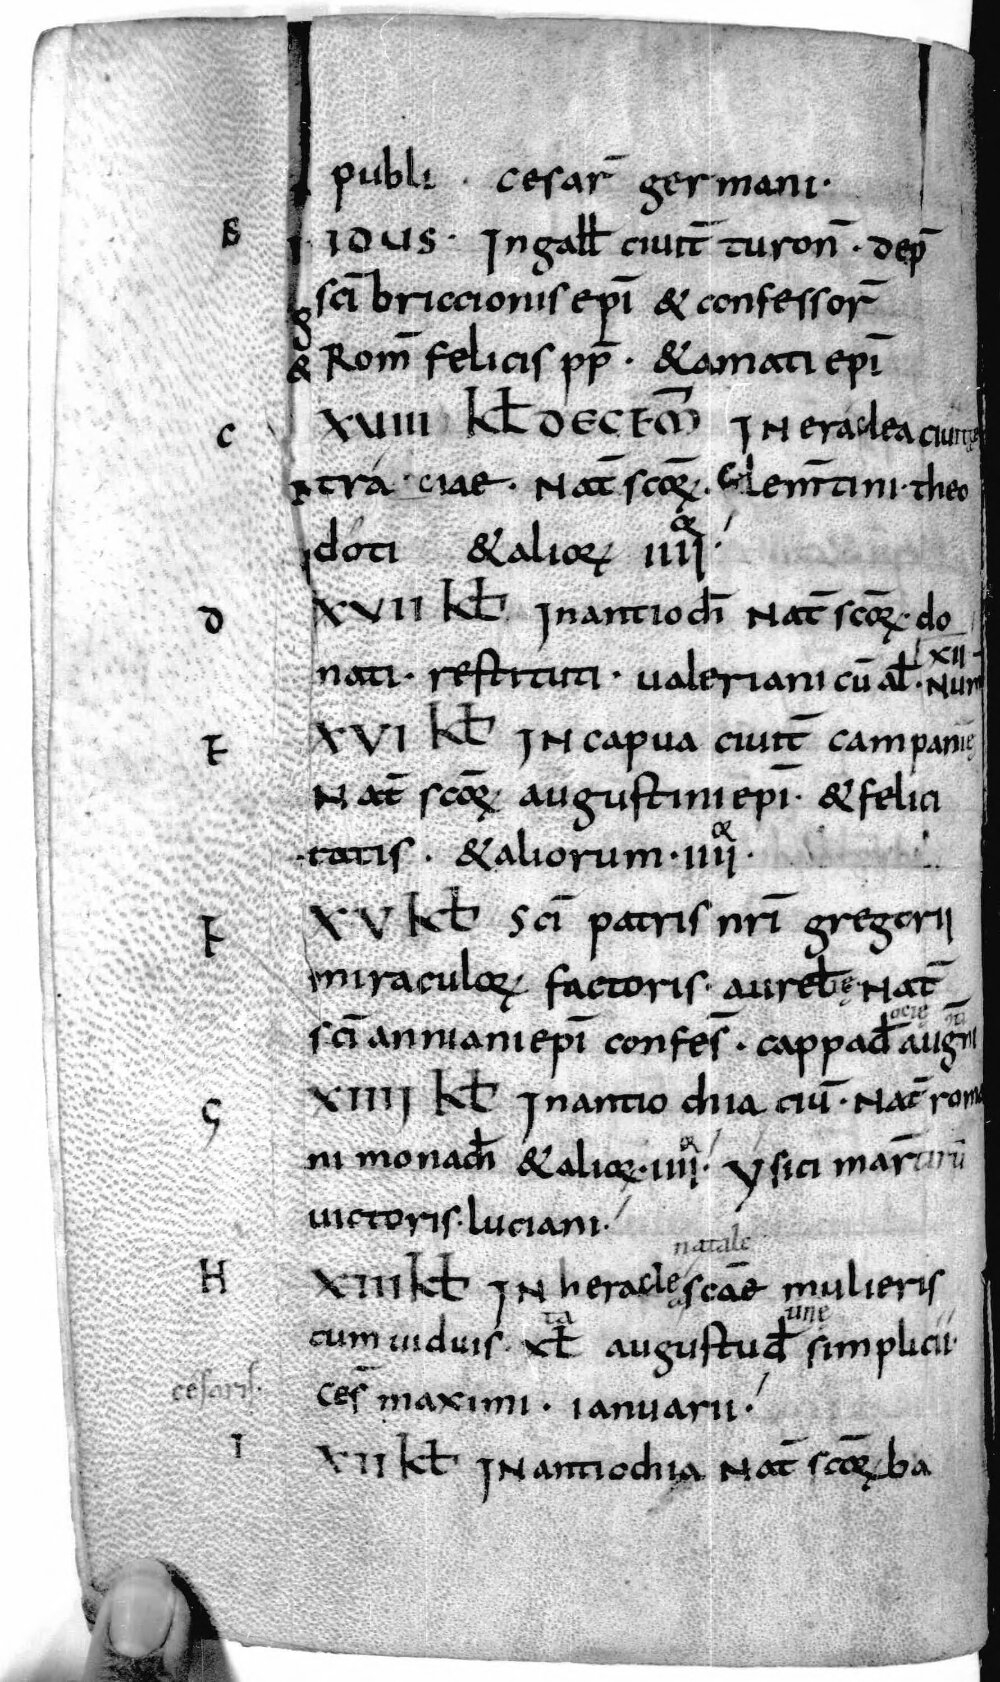 publi . cesar̄ germani.
B IDUS. In gall ciuit̄ turon̄. dep̄
sc̄i briccionis ep̄i & confessor̄
& Rom̄ felicis pp̄. & amati ep̄i
C XVIII kƚ DECEM̄ IN eraclea ciuit
traciae. Nat̄ sc̄oꝝ. Clem̄tini. theo
doti & alioꝝ iiii
D XVII kƚ In antioch̄ Nat̄ sc̄oꝝ. do
nati. restituti. ualeriani cū al. xii Nur
E XVI kƚ IN capua ciuit̄ campanię
Nat̄ sc̄oꝝ augustini ep̄i. & felici
tatis. & aliorum. iiii.
F XV kƚ Sc̄i patris nr̄i gregorii
miraculoꝝ factoris. aurel Nat̄
sc̄i anniani ep̄i confes̄. cappad̄ocię aug
G XIIII kƚ In antiochia ciū. Nat̄ roma
ni monach̄ & alioꝝ. iiii. ysici mar̄tirū
uictoris. luciani.
natale
H XIII kƚ IN heracleę sc̄ae mulieris
cum uiduis. xl augustud̄unę simplicii.
cesaris. ces̄ maximi. ianuarii.
I XII kƚ IN antiochia Nat̄ sc̄oꝝ ba